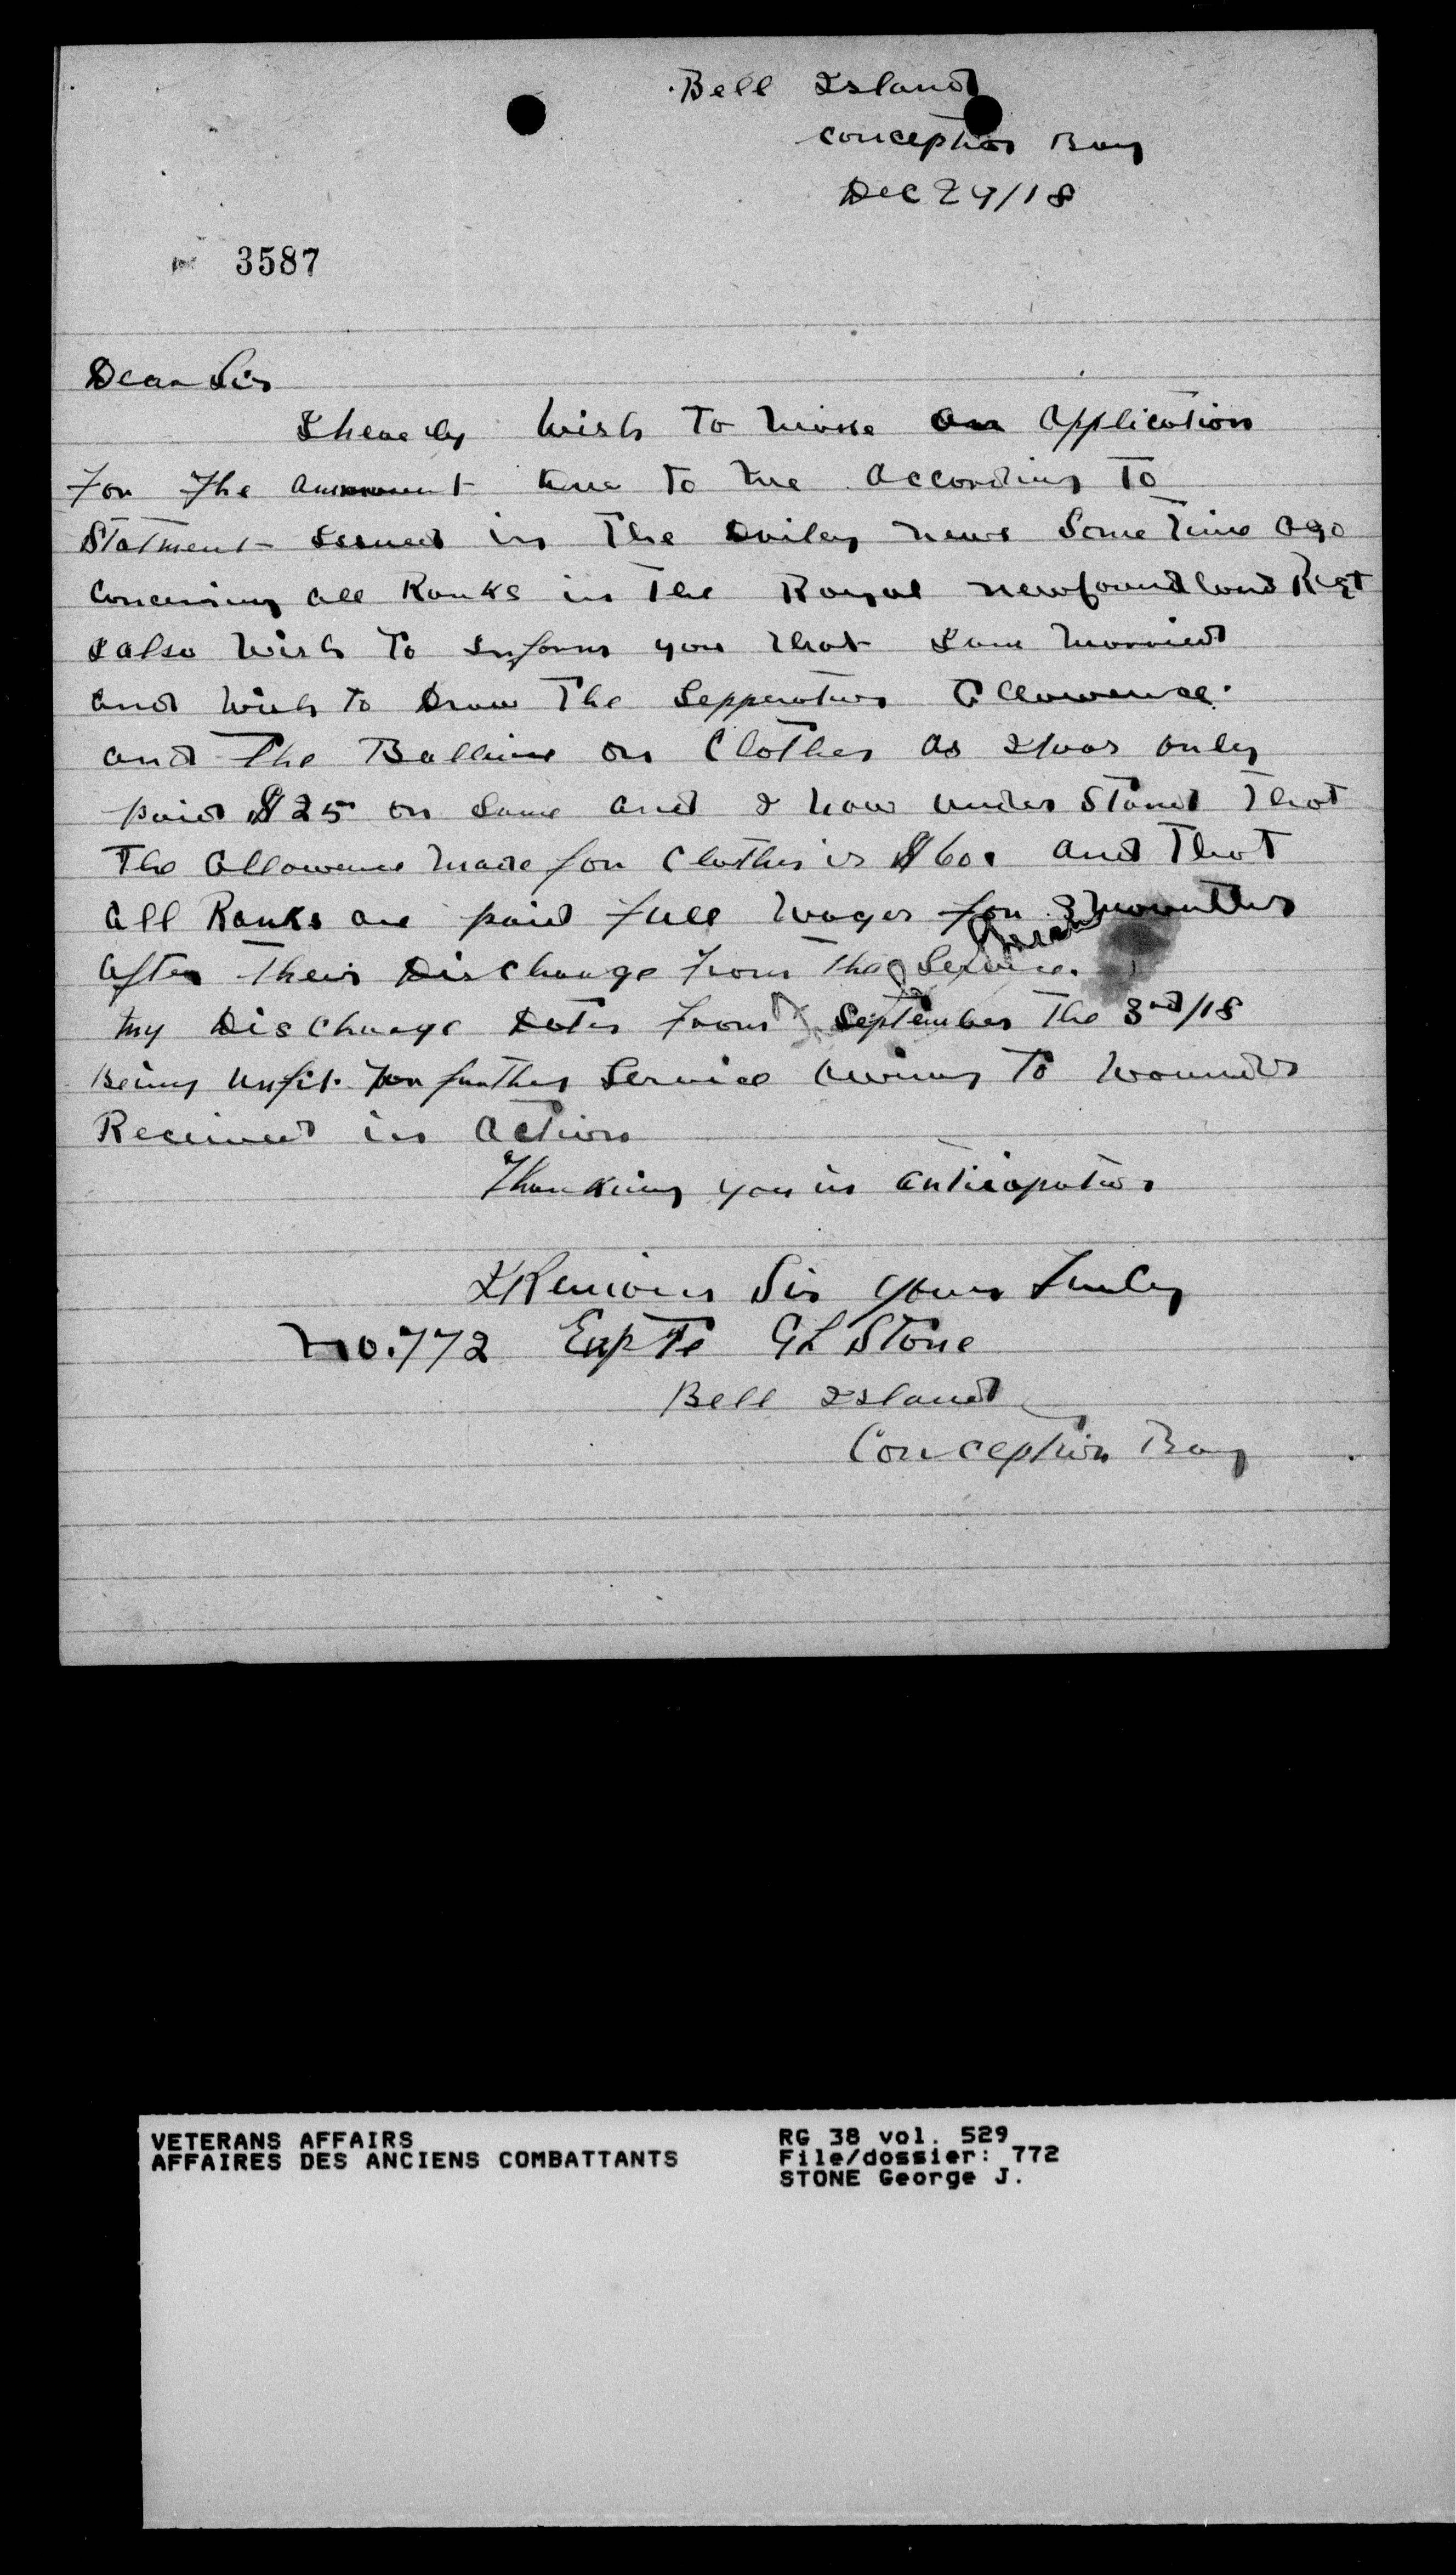 Bell Island
Conception Bay
Dec 24/18
3587
Dear Sir
I hereby wish to make an application
for the amount due to me according to
Statment issued in the Dailey news some time ago
Concerning all Ranks in the Royal newfoundland Regt
I also wish to inform you that I am married
and wish to Draw the Sepperation Allowence.
and the Ballance on Clothes as I was only
paid $25 on same and I now under Stand that
the allowence made for Clothes is $60. and that
all Ranks are paid full wages for 3 mounths
after their Discharge from the Service.
my Discharge Dates from September the 3rd/18
Being unfit for further Service owing to wounds
Received in action
Thanking you in anticapation
I Remain Sir yours Truly
no. 772 Exp Te G L Stone
Bell Island
Conception Bay
VETERANS AFFAIRS
AFFAIRES DES ANCIENS COMBATTANTS
RG 38 vol. 529
File/dossier: 772
STONE George J.